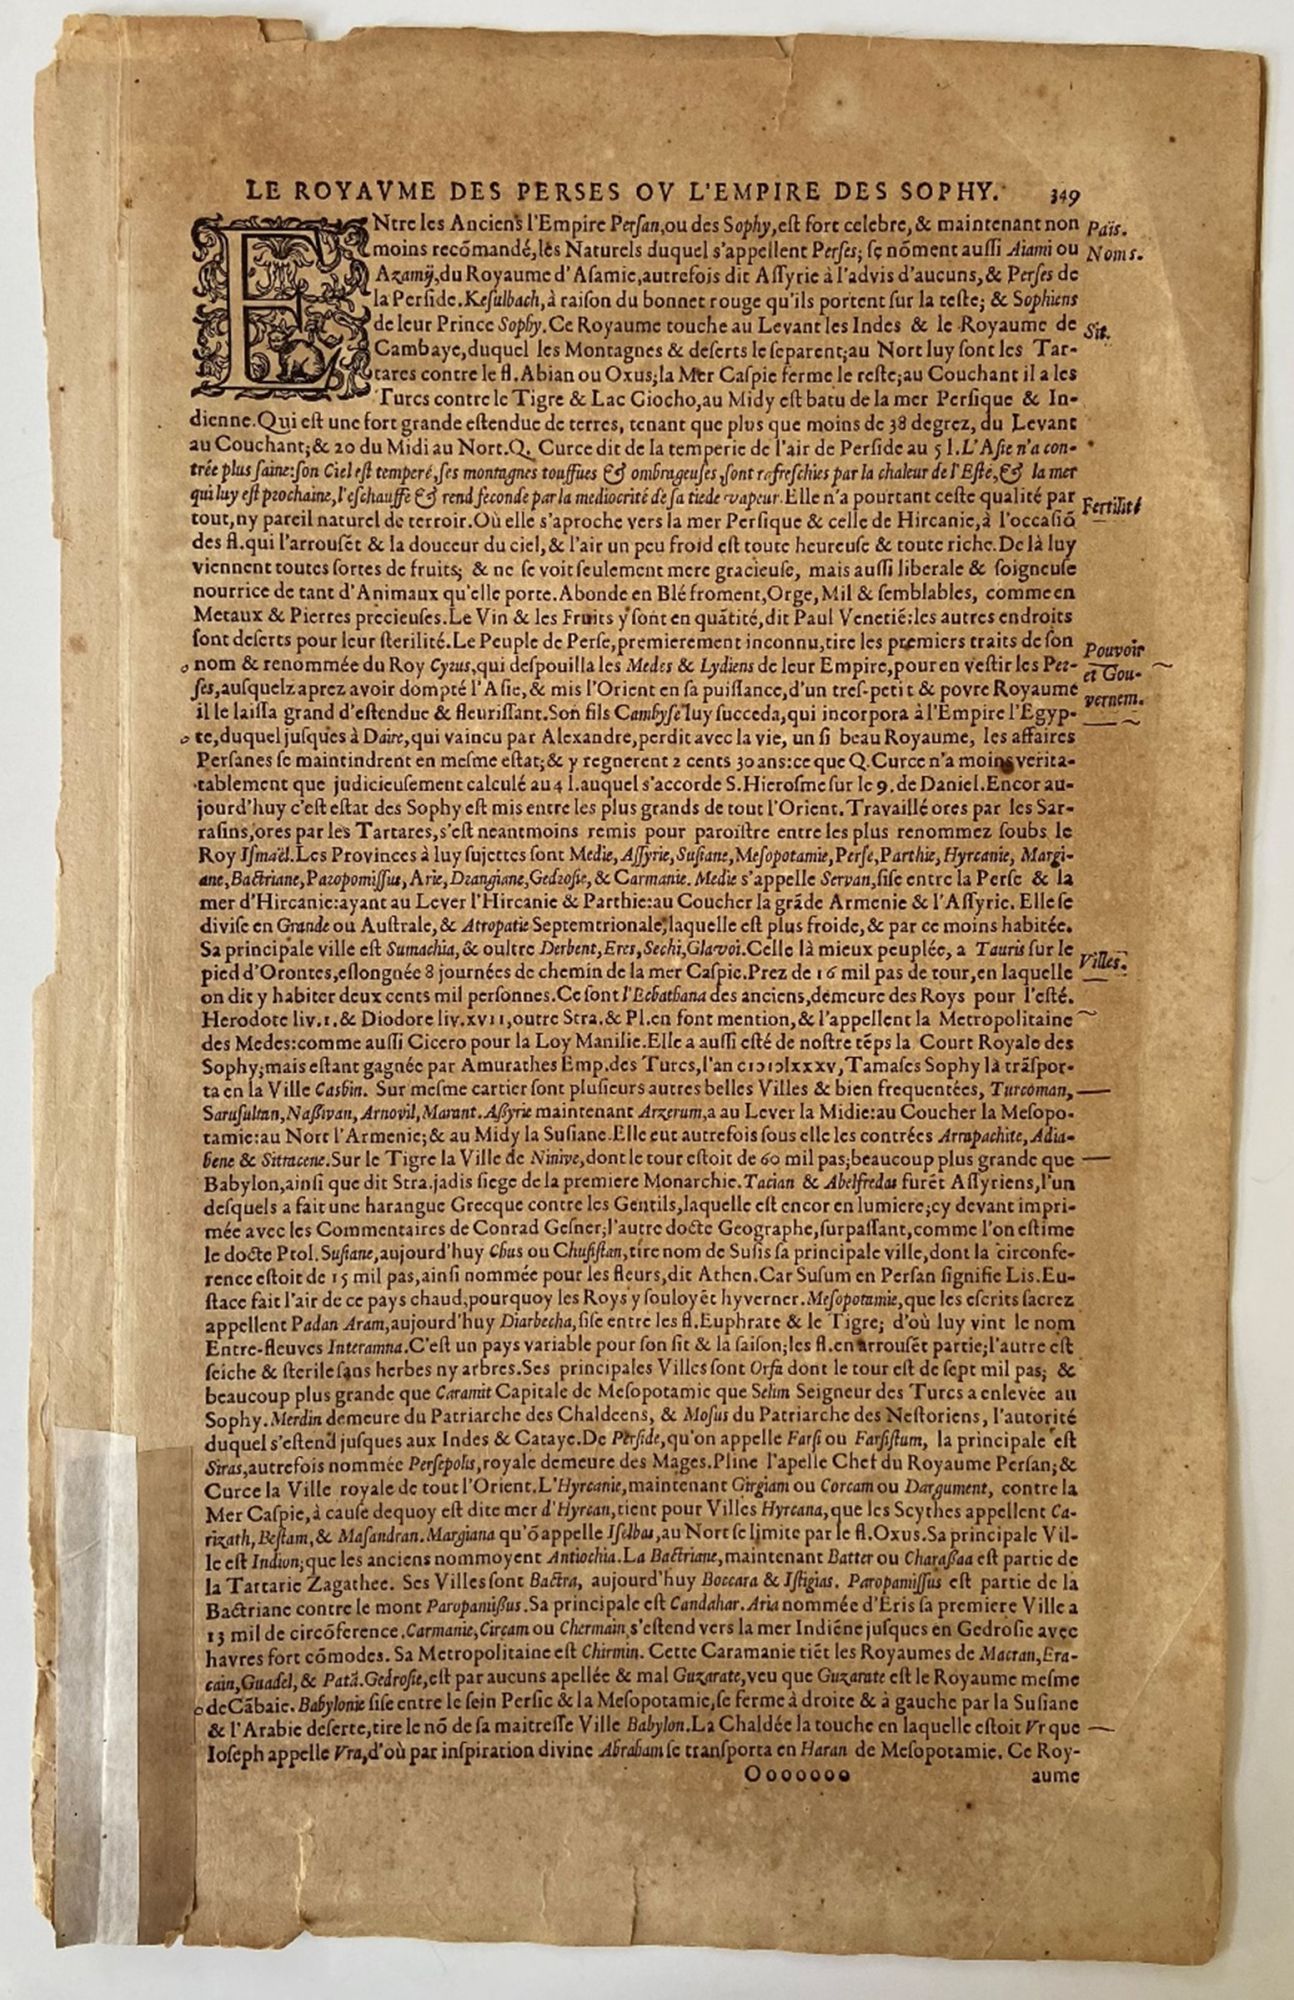 LE ROYAVME DES PERSES OV L'EMPIRE DES SOPHY. 349
ENtre les Anciens l'Empire Persan, ou des Sophy, est fort celebre, & maintenant non
Païs.
moins recõmandé, les Naturels duquel s'appellent Perses; se nõment aussi Aiami ou
Noms.
Azamij, du Royaume d'Asamie, autrefois dit Assyrie à l'advis d'aucuns, & Perses de
la Perside. Kesulbach, à raison du bonnet rouge qu'ils portent sur la teste; & Sophiens
de leur Prince Sophy. Ce Royaume touche au Levant les Indes & le Royaume de
Sit.
Cambaye, duquel les Montagnes & deserts le separent; au Nort luy sont les Tar-
tares contre le fl. Abian ou Oxus; la Mer Caspie ferme le reste; au Couchant il a les
Turcs contre le Tigre & Lac Giocho, au Midy est batu de la mer Persique & In-
dienne. Qui est une fort grande estendue de terres, tenant que plus que moins de 38 degrez, du Levant
au Couchant; & 20 du Midi au Nort. Q. Curce dit de la temperie de l'air de Perside au 5 l. L'Asie n'a con-
trée plus saine: son Ciel est temperé, ses montagnes touffues & ombrageuses, sont rafreschies par la chaleur de l'Esté, & la mer
qui luy est prochaine, l'eschauffe & rend feconde par la mediocrité de sa tiede vapeur. Elle n'a pourtant ceste qualité par
Fertilité
tout, ny pareil naturel de terroir. Où elle s'aproche vers la mer Persique & celle de Hircanie, à l'occasiõ
des fl. qui l'arrousẽt & la douceur du ciel, & l'air un peu froid est toute heureuse & toute riche. De là luy
viennent toutes sortes de fruits; & ne se voit seulement mere gracieuse, mais aussi liberale & soigneuse
nourrice de tant d'Animaux qu'elle porte. Abonde en Blé froment, Orge, Mil & semblables, comme en
Metaux & Pierres precieuses. Le Vin & les Fruits y sont en quãtité, dit Paul Venetiẽ: les autres endroits
sont deserts pour leur sterilité. Le Peuple de Perse, premierement inconnu, tire les premiers traits de son
Pouvoir
nom & renommée du Roy Cyrus, qui despouilla les Medes & Lydiens de leur Empire, pour en vestir les Per-
et Gou-
ses, ausquelz aprez avoir dompté l'Asie, & mis l'Orient en sa puissance, d'un tres-petit & povre Royaume
vernem.
il le laissa grand d'estendue & fleurissant. Son fils Cambyse luy succeda, qui incorpora à l'Empire l'Egyp-
te, duquel jusques à Daire, qui vaincu par Alexandre, perdit avec la vie, un si beau Royaume, les affaires
Persanes se maintindrent en mesme estat; & y regnerent 2 cents 30 ans: ce que Q. Curce n'a moins verita-
tablement que judicieusement calculé au 4 l. auquel s'accorde S. Hierosme sur le 9. de Daniel. Encor au-
jourd'huy c'est estat des Sophy est mis entre les plus grands de tout l'Orient. Travaillé ores par les Sar-
rasins, ores par les Tartares, s'est neantmoins remis pour paroistre entre les plus renommez soubs le
Roy Ismaël. Les Provinces à luy sujettes sont Medie, Assyrie, Susiane, Mesopotamie, Perse, Parthie, Hyrcanie, Margi-
ane, Bactriane, Paropomissus, Arie, Drangiane, Gedrosie, & Carmanie. Medie s'appelle Servan, sise entre la Perse & la
mer d'Hircanie: ayant au Lever l'Hircanie & Parthie: au Coucher la grãde Armenie & l'Assyrie. Elle se
divise en Grande ou Australe, & Atropatie Septemtrionale, laquelle est plus froide, & par ce moins habitée.
Sa principale ville est Sumachia, & oultre Derbent, Eres, Sechi, Glavoi. Celle là mieux peuplée, a Tauris sur le
Villes.
pied d'Orontes, eslongnée 8 journées de chemin de la mer Caspie. Prez de 16 mil pas de tour, en laquelle
on dit y habiter deux cents mil personnes. Ce sont l'Ecbathana des anciens, demeure des Roys pour l'esté.
Herodote liv. 1. & Diodore liv. xvii, outre Stra. & Pl. en font mention, & l'appellent la Metropolitaine
des Medes: comme aussi Cicero pour la Loy Manilie. Elle a aussi esté de nostre tẽps la Court Royale des
Sophy; mais estant gagnée par Amurathes Emp. des Turcs, l'an cıɔıɔlxxxv, Tamases Sophy là trãspor-
ta en la Ville Casbin. Sur mesme cartier sont plusieurs autres belles Villes & bien frequentées, Turcoman,
Sarusultan, Naßivan, Arnovil, Marant. Aßyrie maintenant Arzerum, a au Lever la Midie: au Coucher la Mesopo-
tamie: au Nort l'Armenie; & au Midy la Susiane. Elle eut autrefois sous elle les contrées Arrapachite, Adia-
bene & Sitracene. Sur le Tigre la Ville de Ninive, dont le tour estoit de 60 mil pas; beaucoup plus grande que
Babylon, ainsi que dit Stra. jadis siege de la premiere Monarchie. Tacian & Abelfredas furẽt Assyriens, l'un
desquels a fait une harangue Grecque contre les Gentils, laquelle est encor en lumiere; cy devant impri-
mée avec les Commentaires de Conrad Gesner; l'autre docte Geographe, surpassant, comme l'on estime
le docte Ptol. Susiane, aujourd'huy Chus ou Chusistan, tire nom de Susis sa principale ville, dont la circonfe-
rence estoit de 15 mil pas, ainsi nommée pour les fleurs, dit Athen. Car Susum en Persan signifie Lis. Eu-
stace fait l'air de ce pays chaud, pourquoy les Roys y souloyẽt hyverner. Mesopotamie, que les escrits sacrez
appellent Padan Aram, aujourd'huy Diarbecha, sise entre les fl. Euphrate & le Tigre; d'où luy vint le nom
Entre-fleuves Interamna. C'est un pays variable pour son sit & la saison; les fl. en arrousẽt partie; l'autre est
seiche & sterile sans herbes ny arbres. Ses principales Villes sont Orfa dont le tour est de sept mil pas; &
beaucoup plus grande que Caramit Capitale de Mesopotamie que Selim Seigneur des Turcs a enlevée au
Sophy. Merdin demeure du Patriarche des Chaldeens, & Mosus du Patriarche des Nestoriens, l'autorité
duquel s'estend jusques aux Indes & Cataye. De Perside, qu'on appelle Farsi ou Farsistum, la principale est
Siras, autrefois nommée Persepolis, royale demeure des Mages. Pline l'apelle Chef du Royaume Persan; &
Curce la Ville royale de tout l'Orient. L'Hyrcanie, maintenant Girgiam ou Corcam ou Dargument, contre la
Mer Caspie, à cause dequoy est dite mer d'Hyrcan, tient pour Villes Hyrcana, que les Scythes appellent Ca-
rizath, Bestam, & Masandran. Margiana qu'õ appelle Iselbas, au Nort se limite par le fl. Oxus. Sa principale Vil-
le est Indion; que les anciens nommoyent Antiochia. La Bactriane, maintenant Batter ou Charaßaa est partie de
la Tartarie Zagathee. Ses Villes sont Bactra, aujourd'huy Boccara & Istigias. Paropamissus est partie de la
Bactriane contre le mont Paropamißus. Sa principale est Candahar. Aria nommée d'Eris sa premiere Ville a
13 mil de circõference. Carmanie, Circam ou Chermain, s'estend vers la mer Indiẽne jusques en Gedrosie avec
havres fort cõmodes. Sa Metropolitaine est Chirmin. Cette Caramanie tiẽt les Royaumes de Macran, Era-
cain, Guadel, & Patã. Gedrosie, est par aucuns apellée & mal Guzarate, veu que Guzarate est le Royaume mesme
de Cãbaie. Babylonie sise entre le sein Persic & la Mesopotamie, se ferme à droite & à gauche par la Susiane
& l'Arabie deserte, tire le nõ de sa maitresse Ville Babylon. La Chaldée la touche en laquelle estoit Vr que
Ioseph appelle Vra, d'où par inspiration divine Abraham se transporta en Haran de Mesopotamie. Ce Roy-
Ooooooo aume